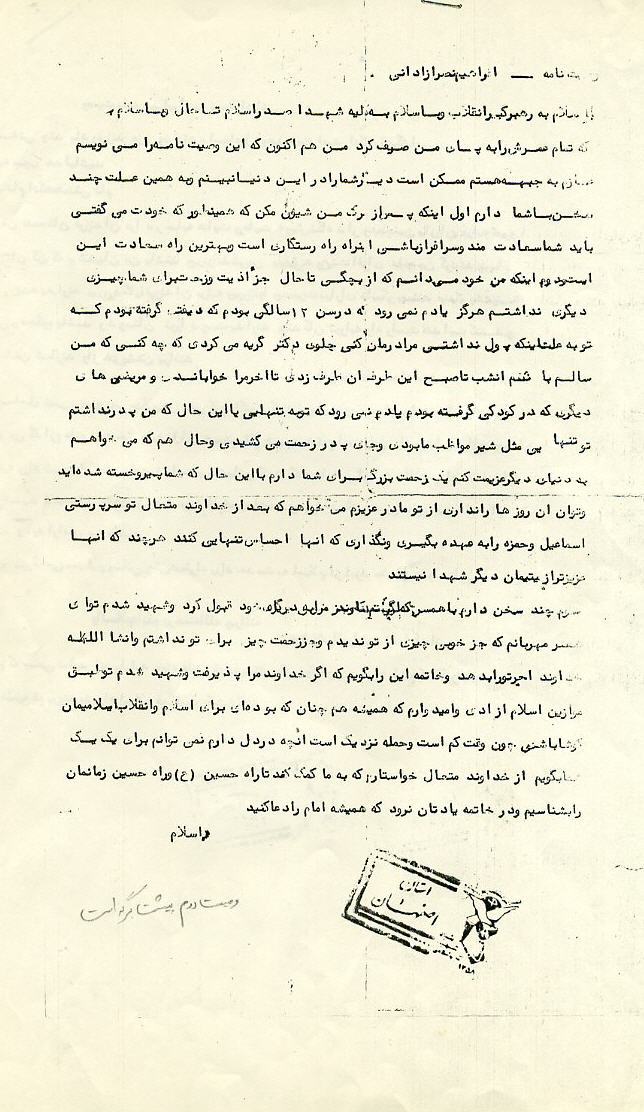 وصیت نامه — ابراهیم نصرازادانی .
با سلام به رهبر کبیر انقلاب وبا سلام به کلیه شهدا ا صدر اسلام تا حال وبا سلام به
که تمام عمرش را به پای من صرف کرد من هم اکنون که این وصیت نامه را می نویسم
عازم به جبهه هستم ممکن است دیگر شما را در این دنیا نبینم وبه همین علت چند
سخن با شما دارم اول اینکه پس از مرگ من شیون مکن که همینطور که خودت می گفتی
باید شما سعادت مند وسرافراز باشی این راه راه رستگاری است وبهترین راه سعادت این
است دوم اینکه من خود می دانم که از بچگی تا حال جز أذیت وزحمت برای شما چیزی
دیگری نداشتم هرگز یادم نمی رود که درسن ۱۲ سالگی بودم که گرفته بودم کـه
تو به علت اینکه پول نداشتی مرا درمان کنی جلوی دکتر گریه می کردی که بچه کسی که من
سالم با شم انشب تا صبح این طرف ان طرف زدی تا اخر مرا خواباندی و مریضی ها ی
دیگری که در کود کی گرفته بودم یادم نمی رود که توبه تنهایی با این حال که من پدر نداشتم
تو تنها یی مثل شیر مواظب ما بودی وجای پدر زحمت می کشیدی وحال هم که می خواهم
به دنیای دیگر عزیمت کنم یک زحمت بزرگ برای شما دارم با این حال که شما پیر وخسته شده اید
وتوان ان روز ها را نداری از تو مادر عزیزم می خواهم که بعد از خداوند متعال تو سرپرستی
اسماعیل وحمزه را به عهده بگیری ونگذاری که انها احساس تنهایی کنند هر چند که انها
عزیزتر از یتیمان دیگر شهدا نیستند
سوم چند سخن دارم با همسر خود قبول کرد وشهید شدم توا ی
همسر مهربانم که جز خوبی چیزی از تو ندیدم وجز زحمت چیز برای تو نداشتم وانشا الله
خداوند اجر تو را بدهد وخاتمه این را بگویم که اگر خداوند مرا پذیرفت وشهید شدم تو طبق
موازین اسلام ازادی وامیدوارم که همیشه هم چنان که بوده ای برای اسلام وانقلاب اسلامیمان
کوشا باشی چون وقت کم است وحمله نزدیک است انچه در دل دارم نمی توانم برای یک یـک
شما بگویم از خداوند متعال خواستارم که به ما کمک کند تا راه حسین (ع) وراه حسین زمانمان
را بشناسیم ودر خاتمه یادتان نرود که همیشه امام را دعا کنید
والسلام
استانداری
اصفهان
۱۳۵۸